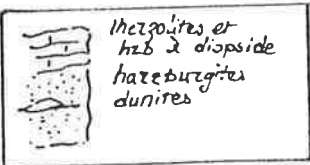 lherzolites et
hzb à diopside
harzburgites
dunites